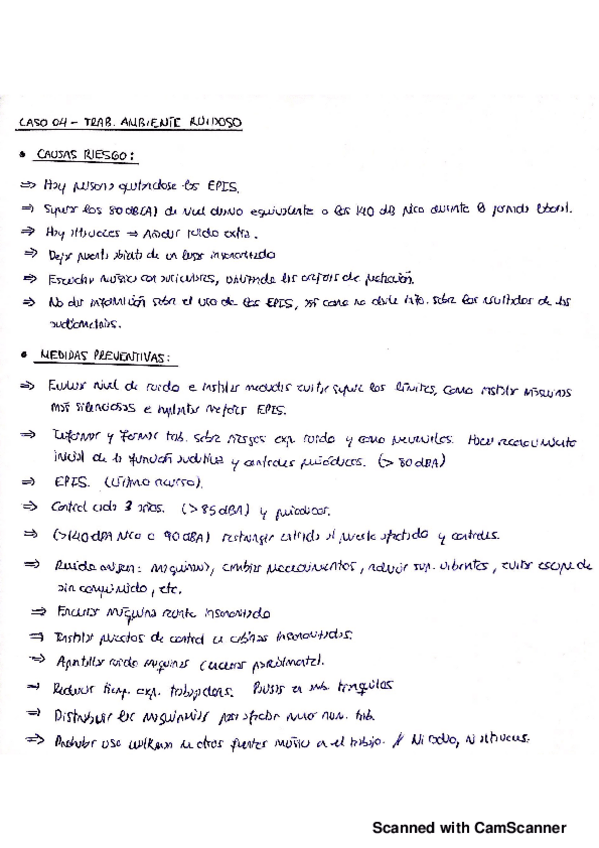 CASO 04 - TRAB. AMBIENTE RUIDOSO
• CAUSAS RIESGO:
⇒ Hay personas quitándose los EPIS.
⇒ Superar los 80 dB(A) de nivel diario equivalente o los 140 dB pico durante la jornada laboral.
⇒ Hay altavoces ⇒ Añadir ruido extra.
⇒ Dejar puerta abierta de un lugar insonorizado
⇒ Escuchar música con auriculares, quitándose los de protección.
⇒ No dar información sobre el uso de los EPIS, así como no darle info. sobre los resultados de las
audiometrías.
• MEDIDAS PREVENTIVAS:
⇒ Evaluar nivel de ruido e instalar medidas evitar superar los límites, como instalar máquinas
más silenciosas e implantar mejores EPIS.
⇒ Informar y formar trab. sobre riesgos exp. ruido y como prevenirlos. Hacer reconocimiento
inicial de la función auditiva y controles periódicos. (> 80 dBA)
⇒ EPIS. (Último recurso).
⇒ Control cada 3 años. (> 85 dBA) y periódicos.
⇒ (>140 dBA pico o 90 dBA) restringir entrada al puesto afectado y controles.
⇒ Ruido origen: máquinas, cambiar procedimientos, reducir sup. vibrantes, evitar escape de
aire comprimido, etc.
⇒ Encerrar máquina recinto insonorizado
⇒ Instalar puestos de control en cabinas insonorizadas.
⇒ Apantallar ruido máquinas (encerrar parcialmente).
⇒ Reducir tiemp. exp. trabajadores. Pausas en amb. tranquilos
⇒ Distribuir las maquinarias para afectar menor num. trab.
⇒ Prohibir uso de otras fuentes música en el trabajo. // Ni radio, ni altavoces.
Scanned with CamScanner